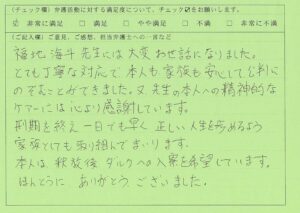 (チェック欄) 弁護活動に対する満足度について、チェック☑をお願いします。
☑ 非常に満足 □ 満足 □ やや満足 □ 不満 □ 非常に不満
(ご記入欄) ご意見、ご感想、担当弁護士への一言など
福地海斗先生には大変お世話になりました。
とても丁寧な対応で、本人も家族も安心して裁判に
のぞむことができました。又、先生の本人への精神的な
ケアーには心より感謝しています。
刑期を終え一日でも早く正しい人生を歩めるよう
家族としても取り組んでまいります。
本人は釈放後ダルクへの入寮を希望しています。
ほんとうにありがとうございました。